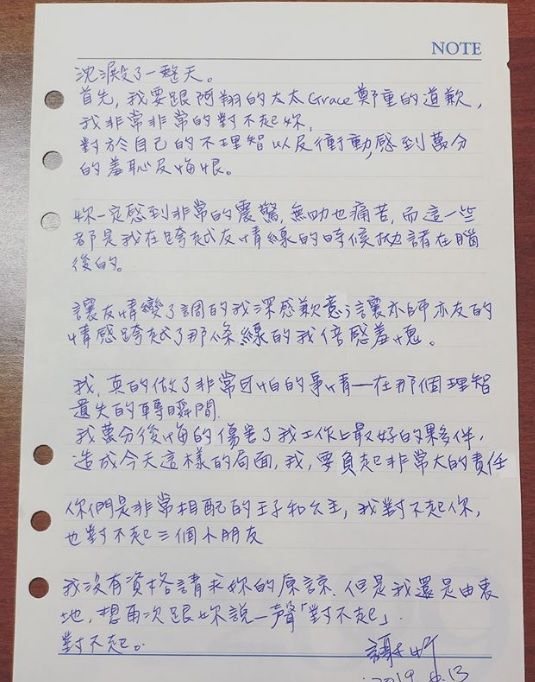 NOTE
沈澱了一整天。
首先,我要跟阿翔的太太Grace鄭重的道歉,
我非常非常的對不起妳,
對於自己的不理智以及衝動,感到萬分
的羞恥及悔恨。
妳一定感到非常的震驚,無助也痛苦,而這一些
都是我在跨越友情線的時候拋諸在腦
後的。
讓友情變了調的我深感歉意;讓亦師亦友的
情感跨越了那條線的我倍感羞愧。
我,真的做了非常可怕的事情—在那個理智
遺失的轉瞬間.
我萬分後悔的傷害了我工作上最好的夥伴,
造成今天這樣的局面,我,要負起非常大的責任
你們是非常相配的王子和公主,我對不起你,
也對不起三個小朋友
我沒有資格請求妳的原諒,但是我還是由衷
地,想再次跟妳說一聲「對不起」.
對不起。
2019.